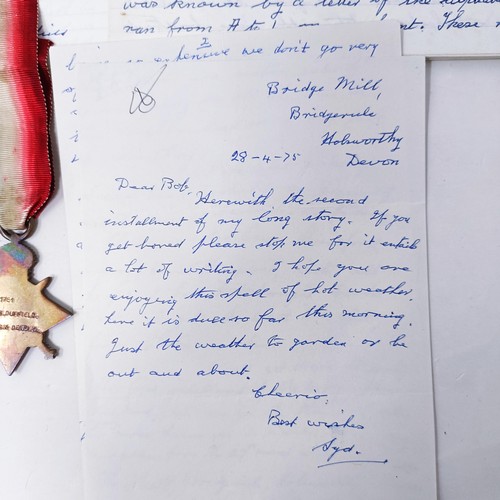 was known by a letter of the
ran from A to
we don't go very
Bridge Mill,
Bridgerule
Holsworthy
Devon
28-4-75
Dear Bob,
Herewith the second
installment of my long story. If you
get bored please stop me for it entails
a lot of writing. I hope you are
enjoying this spell of hot weather,
here it is dull so far this morning.
Just the weather to garden or be
out and about.
Cheerio,
Best wishes
Syd.